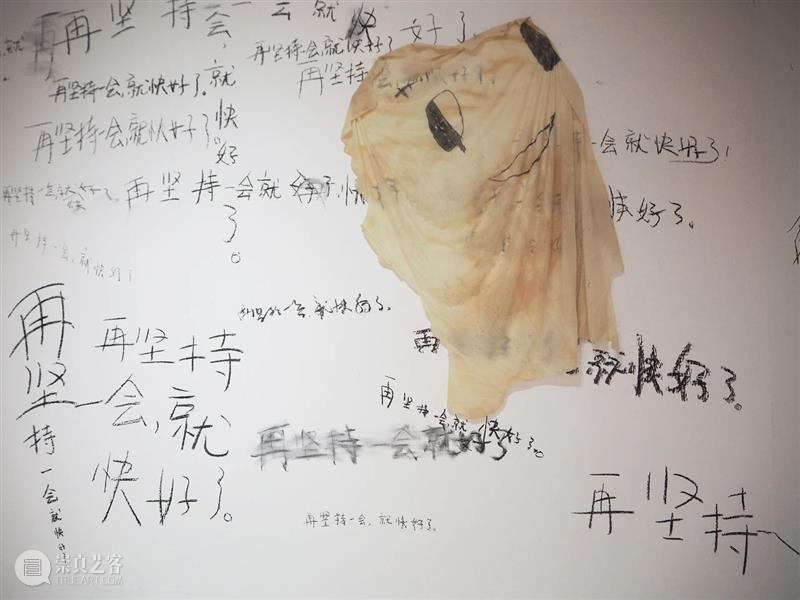 再坚持一会,就快好了
就
再坚持一会就快好了
再坚持一会,就快好了。
再坚持
再坚持一会就快好了。
一会就快好了!
再坚持一会就
快好了。
再坚持一会,就快好了
再坚持一会,就快好了。
再坚持一会就快
再坚持
一会,就
快好了。
再
就快好了。
再坚持一会就快好了。
再坚持一会就好了
再坚持一会,就快好了。
再坚持一
崇真艺客
TRUEART.COM